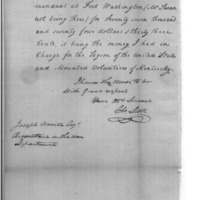 mandant at Fort Washington (Mr Swan
not being there) for twenty seven thousand
and seventy four dollars & thirty three
Cents, it being the money I had in
Charge for the Legion of the United States
and Mounted Volunteers of Kentucky.
I have the honor to be
With great respect
Your Obt Servant
Joseph Howell Esqr
Accountant in the War
Department